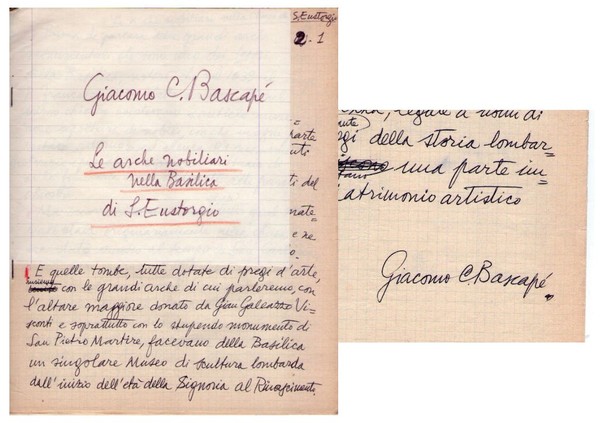 S. Eustorgio
2.1
Giacomo C. Bascapé
Le arche nobiliari
nella Basilica
di S. Eustorgio
E quelle tombe, tutte dotate di pregi d'arte,
insieme con le grandi arche di cui parleremo, con
l'altare maggiore donato da Gian Galeazzo Vi=
sconti e soprattutto con lo stupendo monumento di
San Pietro Martire, facevano della Basilica
un singolare Museo di scultura lombarda
dall'inizio dell'età della Signoria al Rinascimento.
legate a nomi di
della storia lombar=
una parte im=
atrimonio artistico
Giacomo C. Bascapé